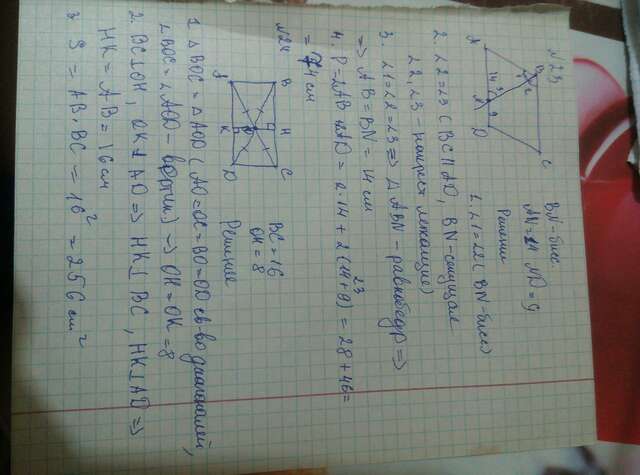 N23
BN-бисс.
AN=14 ND=9
Решение
A
B
C
D
N
14
9
1
2
3
1. ∠1=∠2 (BN-бисс)
2. ∠2=∠3 (BC||AD, BN-секущая
∠2,∠3-накрест лежащие)
3. ∠1=∠2=∠3 => △ABN-равнобедр =>
=> AB=BN=14 см
4. P=2AB+2AD=2·14+2(14+9)=28+46=
23
=74 см
N24
A
B
H
C
K
D
BC=16
OH=8
Решение
1. △BOC=△AOD (AO=OC=BO=OD св-во диагоналей,
∠BOC=∠AOD-вертик) => OH=OK=8
2. BC⊥OH, OK⊥AD => HK⊥BC, HK⊥AD =>
HK=AB=16 см
3 S=AB·BC=16²=256 см²